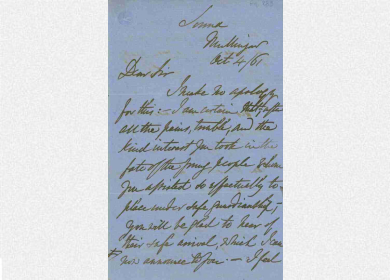 Sonna
Mullingar
Oct 4/61
Dear Sir
I make no apology
for this:— I am certain that, after
all the pains, trouble, and the
kind interest you took in the
fate of the young people whom
you assisted so effectually to
place under safe guardianship,—
you will be glad to hear of
their safe arrival, which I can
now announce to you. — I feel